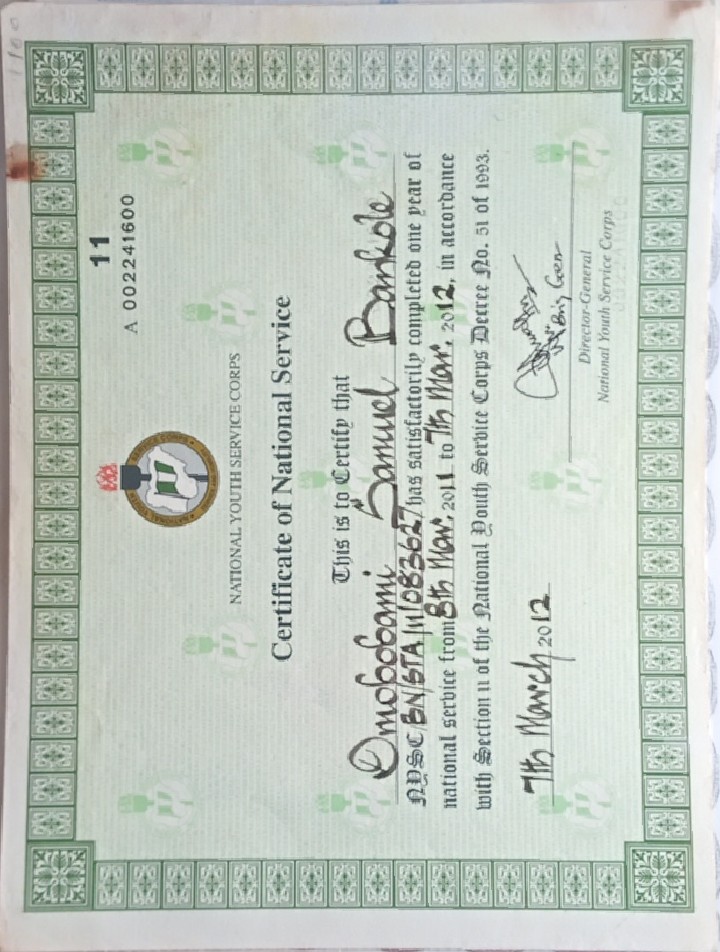 11
A 002241600
NATIONAL YOUTH SERVICE CORPS
Certificate of National Service
This is to Certify that
Omobobami Samuel Bankole
NYSC/BN/STA/11/083627 has satisfactorily completed one year of
national service from 8th Mar. 2011 to 7th Mar. 2012, in accordance
with Section 11 of the National Youth Service Corps Decree No. 51 of 1993.
7th March 2012
Brig Gen
Director-General
National Youth Service Corps